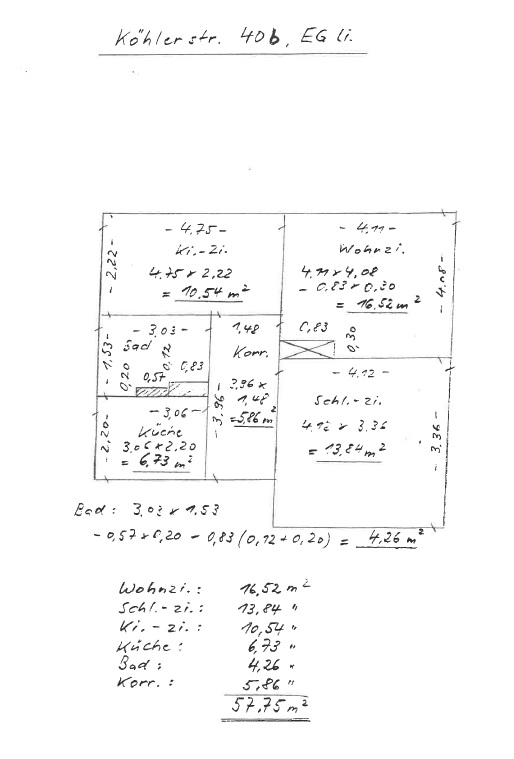 Köhlerstr. 40b, EG li.
- 4.75 -
Ki.-Zi.
4.75 x 2,22
= 10,54 m²
- 2,22 -
- 4.11 -
Wohnzi.
4.11 x 4,08
- 0,83 x 0,30
= 16,52 m²
- 4,08 -
- 3,03 -
Bad
- 1,53 -
0,20
0,12
0,57
0,83
1,48
Korr.
3,96 x
1,48
= 5,86 m²
- 3,96 -
0,83
0,30
- 3,06 -
Küche
3.06 x 2.20
= 6,73 m²
- 2,20 -
- 4.12 -
Schl.-zi.
4.12 x 3.36
= 13,84 m²
- 3,36 -
Bad: 3,03 x 1,53
- 0,57 x 0,20 - 0,83 (0,12 + 0,20) = 4,26 m²
Wohnzi.: 16,52 m²
Schl.-zi.: 13,84 "
Ki.-zi.: 10,54 "
Küche: 6,73 "
Bad: 4,26 "
Korr.: 5,86 "
57,75 m²